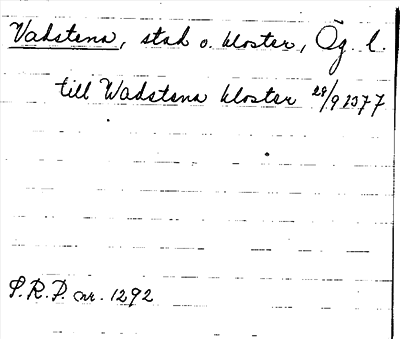 Vadstena, stad o. kloster, Ög. l.
till Wadstena kloster 28/9 1377
S.R.P. nr. 1292